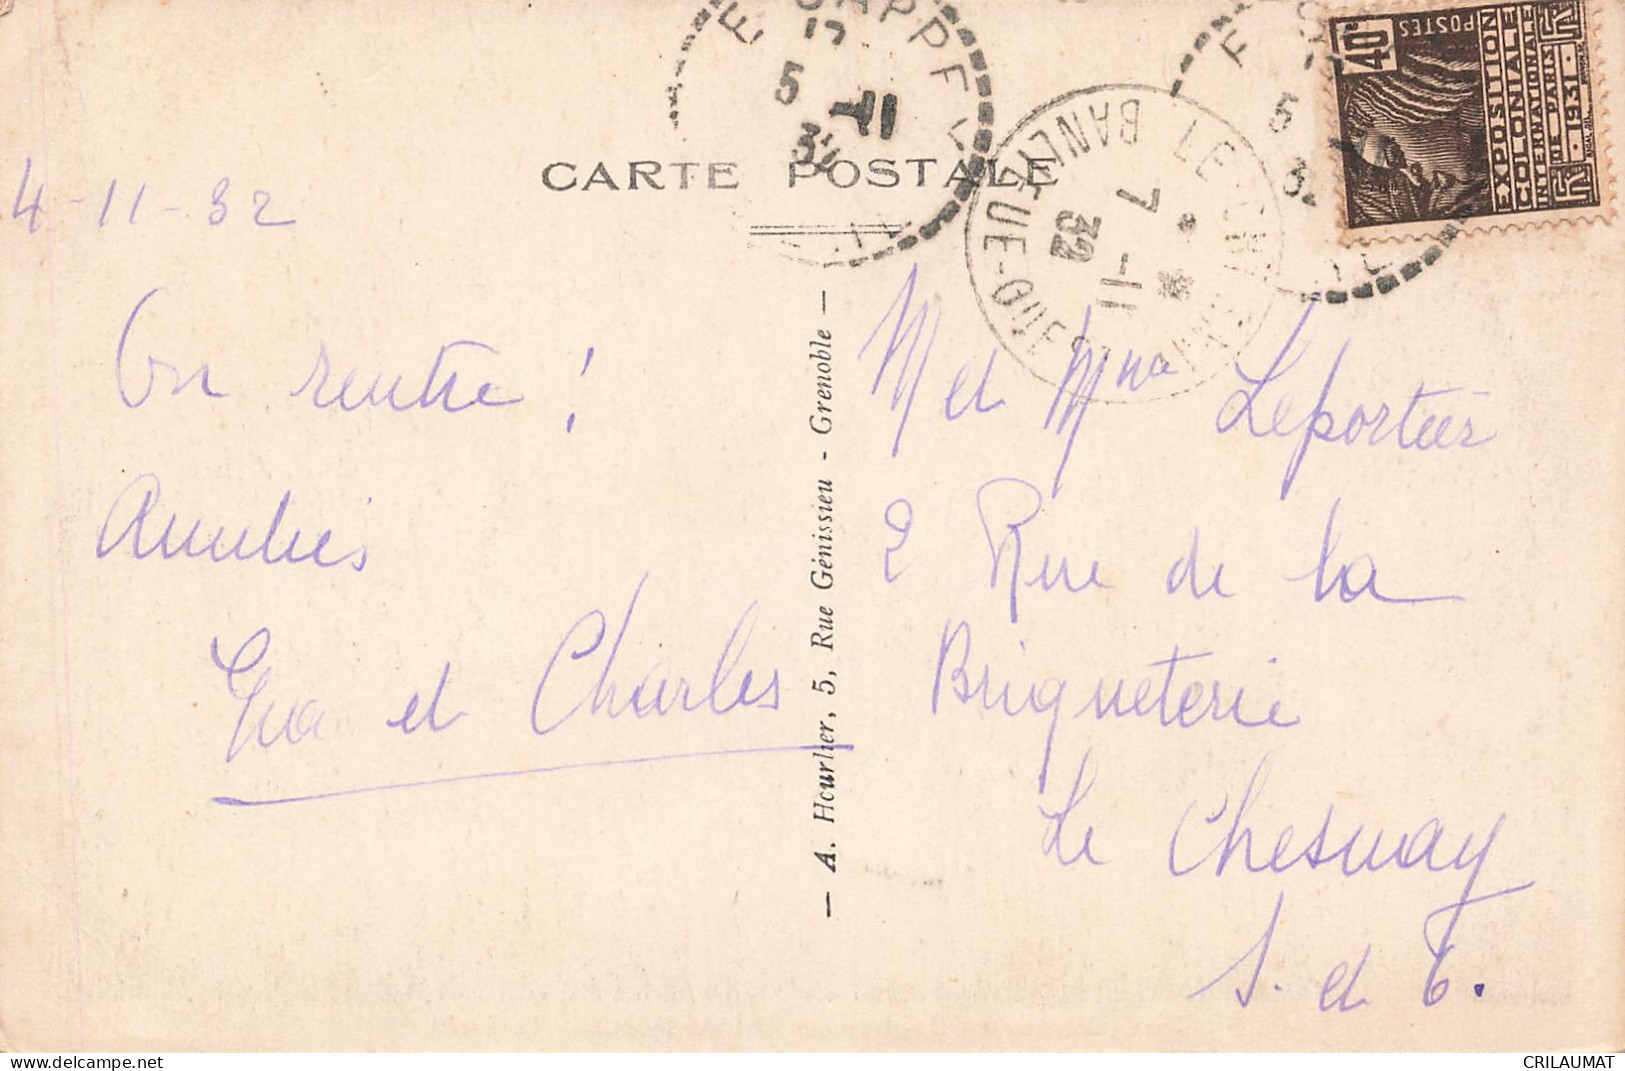 CARTE POSTALE
4-11-32
On rentre !
Amitiés
Eva et Charles
— A. Hourlier, 5, Rue Génissieu - Grenoble —
M et Mme Leportier
2 Rue de la
Briqueterie
Le Chesnay
S. et O.
40c
POSTES
EXPOSITION
COLONIALE
INTERNATIONALE
DE PARIS
1931
5 -11
32
LE CHESNAY
BANLIEUE-OUEST
7 -11
32
CRILAUMAT